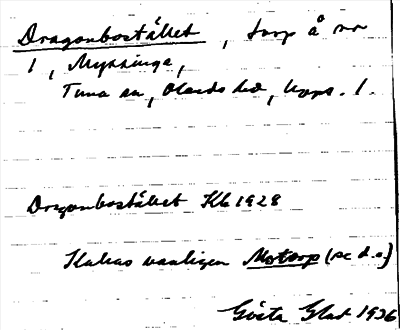 Dragonbostället, torp å nr
1, Myskinge,
Tuna sn, Olands hd, Upps. l.
Dragonbostället Kb 1928
Kallas vanligen Motorp (se d.o)
Gösta Glad 1936